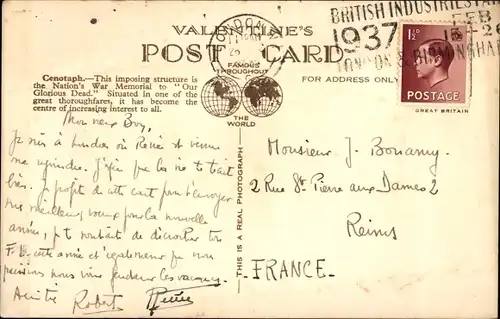 VALENTINE'S
POST CARD
FAMOUS
THROUGHOUT
THE
WORLD
FOR ADDRESS ONLY
BRITISH INDUSTRIES FAIR
1937 FEB
15-26
LONDON & BIRMINGHAM
1½
POSTAGE
GREAT BRITAIN
Cenotaph.—This imposing structure is
the Nation's War Memorial to "Our
Glorious Dead." Situated in one of the
great thoroughfares, it has become the
centre of increasing interest to all.
THIS IS A REAL PHOTOGRAPH
Mon vieux Boy,
Je suis à Londres où Renée est venue
me rejoindre. J'espère que la vie te traite
bien. Je profite de cette carte pour t'envoyer
mes meilleurs vœux pour la nouvelle
année, je te souhaite de décrocher ton
cette année et également que nous
puissions nous voir pendant les vacances.
Amitié Robert Renée
Monsieur J. Bonamy
2 Rue St Pierre aux Dames 2
Reims
FRANCE